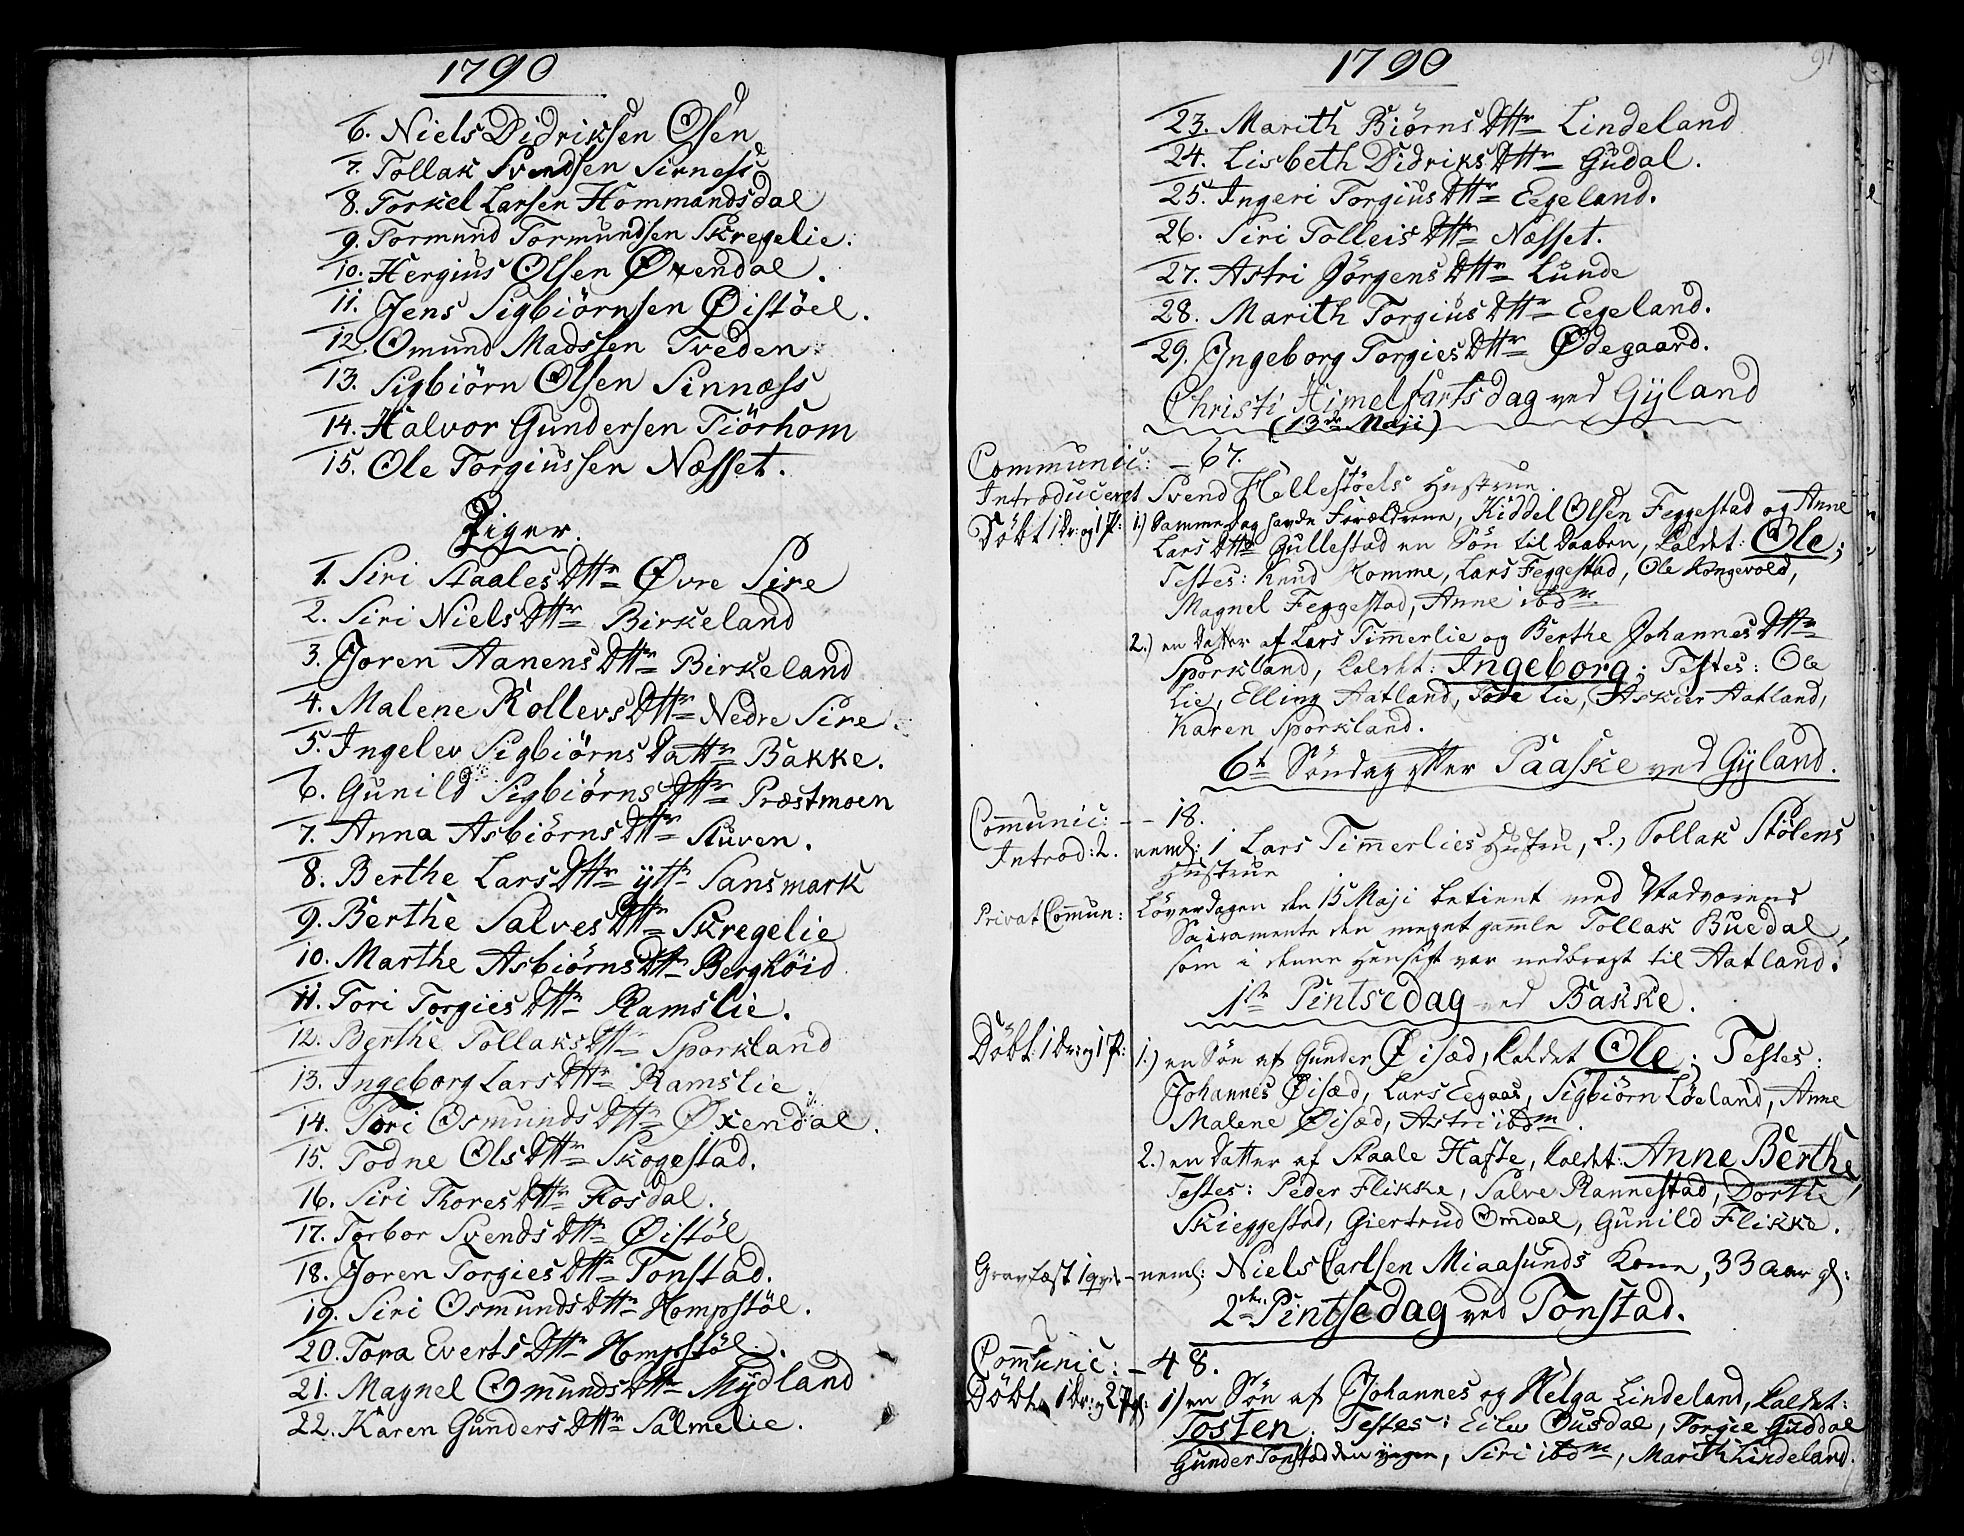 1790
6. Niels Didriksen Osen
7. Tollak Svendsen Sirness
8. Torkel Larsen Hommandsdal
9. Tormund Tormundsen Skregelie.
10. Hergius Olsen Øxendal.
11. Jens Sigbiörnsen Øistöel.
12. Omund Madssen Tveden.
13. Sigbiörn Olsen Sinnæss
14. Halvor Gundersen Tiörhom
15. Ole Torgiussen Næsset.
Piger.
1. Siri Staales Dttr Øvre Sire
2. Siri Niels Dttr Birkeland
3. Joren Aanens Dttr Birkeland
4. Malene Rollevs Dttr Nedre Sire
5. Ingelev Sigbiörns Dattr Bakke.
6. Gunild Sigbiörns Dttr Præstmoen
7. Anna Asbiörns Dttr Stuven.
8. Berthe Lars Dttr ÿttr Sansmark
9. Berthe Salves Dttr Skregelie
10. Marthe Asbiörns Dttr Berghöid
11. Tori Torgies Dttr Ramslie.
12. Berthe Tollaks Dttr Sporkland
13. Ingeborg Lars Dttr Ramslie.
14. Tori Osmunds Dttr Øxendal.
15. Todne Ols Dttr Skogestad.
16. Siri Thores Dttr Fosdal.
17. Torbor Svends Dttr Øistöl
18. Joren Torgies Dttr Tonstad.
19. Siri Osmunds Dttr Hompstöl.
20. Tora Everts Dttr Hompstöl.
21. Magnel Omunds Dttr Mÿdland
22. Karen Gunders Dttr Salmelie.
1790
91
23. Marith Biörns Dttr Lindeland
24. Lisbeth Didriks Dttr Gudal.
25. Ingeri Torgius Dttr Eegeland.
26. Siri Tolleis Dttr Næsset.
27. Astri Jörgens Dttr Lunde
28. Marith Torgius Dttr Eegeland.
29. Ingeborg Torgies Dttr Ødegaard.
Christi Himelfartsdag ved Gÿland
(13de Maji)
Communic: – 67.
Introduceret Svend Hellestöels Hustrue.
Döbt 1 dr: og 1 P: 1.) Samme dag havde Forældrene, Kiddel Olsen Feggestad og Anne
Lars Dttr Gullestad en Sön til Daaben, kaldet: Ole;
Testes: Knud Homme, Lars Feggestad, Ole Kongevold,
Magnel Feggestad, Anne ibdm
2.) en datter af Lars Timmerlie og Berthe Johannes Dttr
Sporkland, kaldet: Ingeborg; Testes: Ole
Lie, Elling Aatland, Tore Lie, Askier Aatland,
Karen Sporkland.
6t Söndag efter Paaske ved Gÿland.
Communic: – – 18.
Introd: 2. neml: 1 Lars Timmerlies Hustru, 2., Tollak Stölens
Hustrue
Privat Commun: Löverdagen den 15 Maji betient med Nadverens
Sacramente den meget gamle Tollak Buedal,
som i denne Hensigt var nedbragt til Aatland.
1ste Pintsedag ved Bakke.
Döbt: 1 dr: og 1 P: 1.) en Sön af Gunder Øisæd, kaldet Ole; Testes:
Johannes Øisæd, Lars Eegaas, Sigbiörn Löeland, Anne
Malene Øisæd, Astri ibdm.
2.) en datter af Staale Hafte, kaldet: Anne Berthe,
Testes: Peder Flikke, Salve Rannestad, Dorthe
Skieggestad, Giertrud Omdal, Gunild Flikke.
Gravfæst 1 qvi – neml: Niels Carlsen Miaasunds Kone, 33 Aar gl:
2den Pintsedag ved Tonstad.
Communic: – 48.
Döbt 1 dr: og 2 Pg: 1) en Sön af Johannes og Helga Lindeland, kaldet:
Tosten. Testes: Eilev Ousdal, Torgie Guddal
Gunder Tonstad den ÿngre, Siri ibdm, Marith Lindeland.